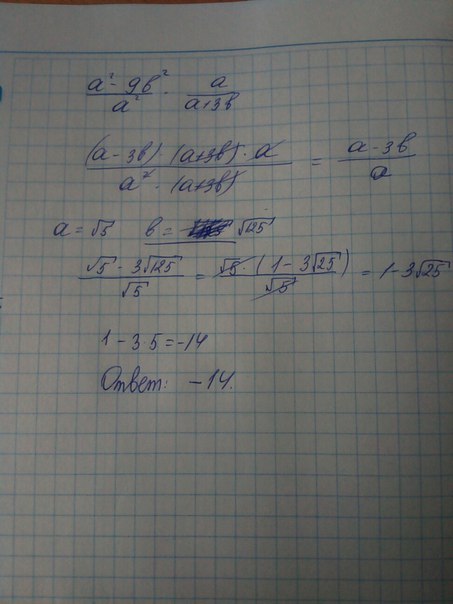 a² - 9b² / a² · a / a+3b
(a - 3b) · (a+3b) · a / a² · (a+3b) = a - 3b / a
a = √5 b = √125
√5 - 3√125 / √5 = √5 · (1 - 3√25) / √5 = 1 - 3√25
1 - 3 5 = -14
Ответ: -14.